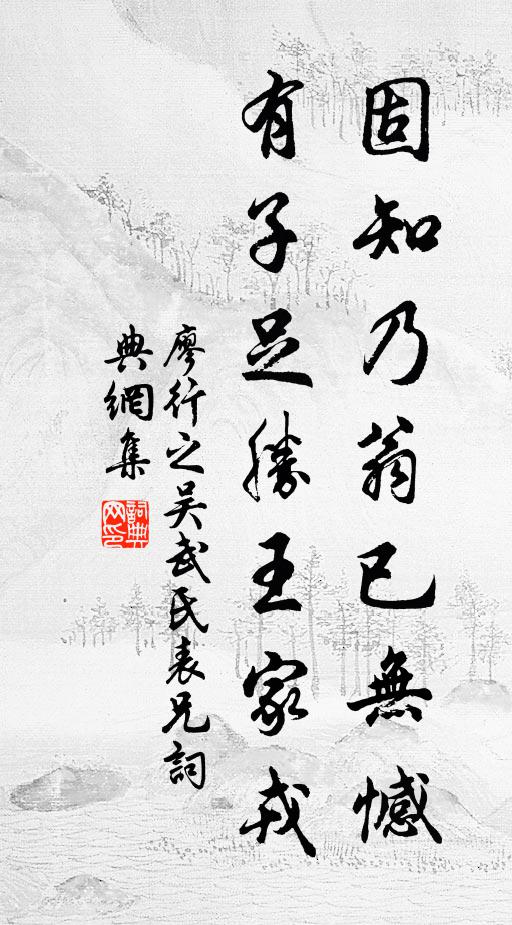 固知乃翁已無憾
有子足勝王家戎
廖行之吴武氏表兄詞
典網集
詞典网印